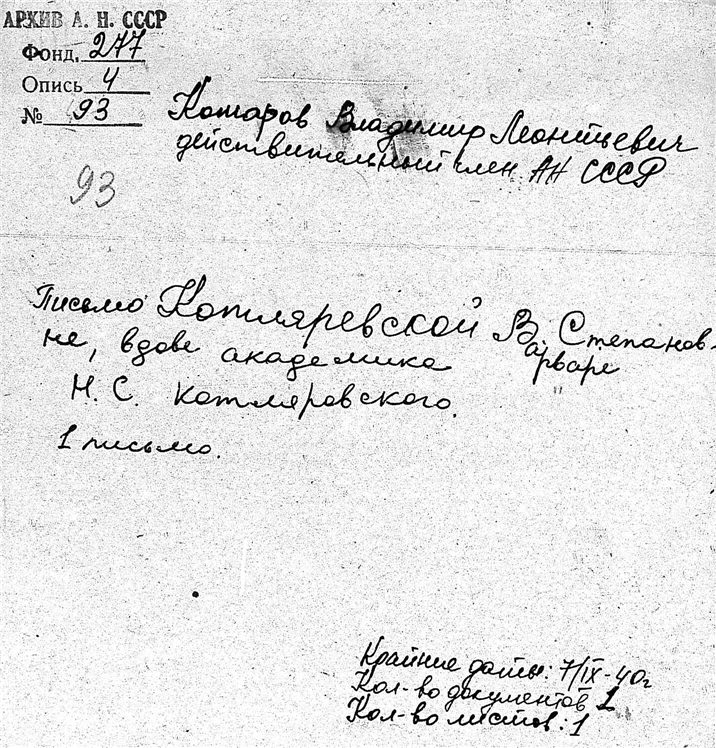 АРХИВ А. Н. СССР
Фонд. 277
Опись 4
№ 93
93
Комаров Владимир Леонтьевич
действительный член АН СССР
Письмо Котляревской Варваре Степанов-
не, вдове академика
Н. С. Котляровского.
1 письмо.
Крайние даты: 7/IX-40г
Кол-во документов 1
Кол-во листов: 1